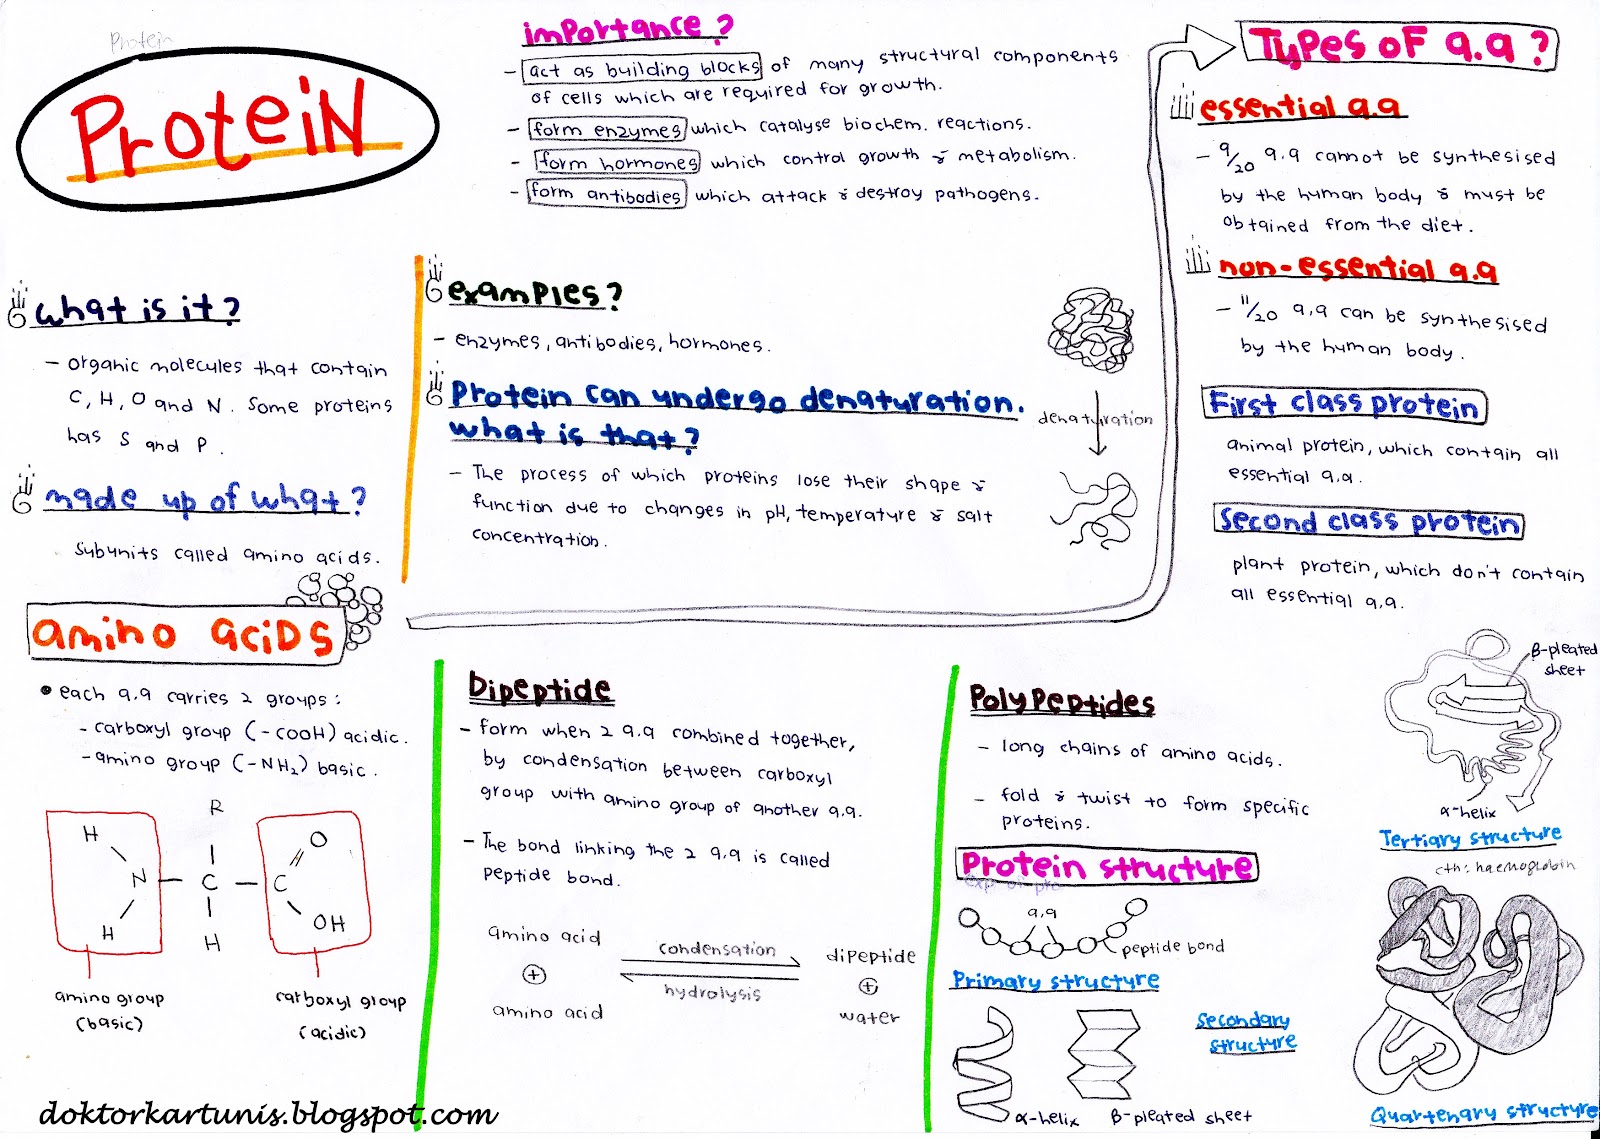 Protein
Protein
importance?
- act as building blocks of many structural components
of cells which are required for growth.
- form enzymes which catalyse biochem. reactions.
- form hormones which control growth & metabolism.
- form antibodies which attack & destroy pathogens.
what is it?
- organic molecules that contain
C, H, O and N. Some proteins
has S and P.
made up of what?
subunits called amino acids.
examples?
- enzymes, antibodies, hormones.
Protein can undergo denaturation.
what is that?
- The process of which proteins lose their shape &
function due to changes in pH, temperature & salt
concentration.
denaturation
Types of a.a?
essential a.a
- 9/20 a.a cannot be synthesised
by the human body & must be
obtained from the diet.
non-essential a.a
- 11/20 a.a can be synthesised
by the human body.
First class protein
animal protein, which contain all
essential a.a.
Second class protein
plant protein, which don't contain
all essential a.a.
amino acids
• each a.a carries 2 groups:
- carboxyl group (-COOH) acidic.
- amino group (-NH₂) basic.
R
H O
N — C — C
H OH
H
amino group
(basic)
carboxyl group
(acidic)
Dipeptide
- form when 2 a.a combined together,
by condensation between carboxyl
group with amino group of another a.a.
- The bond linking the 2 a.a is called
peptide bond.
amino acid
+
amino acid
condensation
hydrolysis
dipeptide
+
water
Polypeptides
- long chains of amino acids.
- fold & twist to form specific
proteins.
Protein structure
a.a
peptide bond
Primary structure
α-helix
β-pleated sheet
Secondary
structure
β-pleated
sheet
α-helix
Tertiary structure
cth: haemoglobin
Quartenary structure
doktorkartunis.blogspot.com